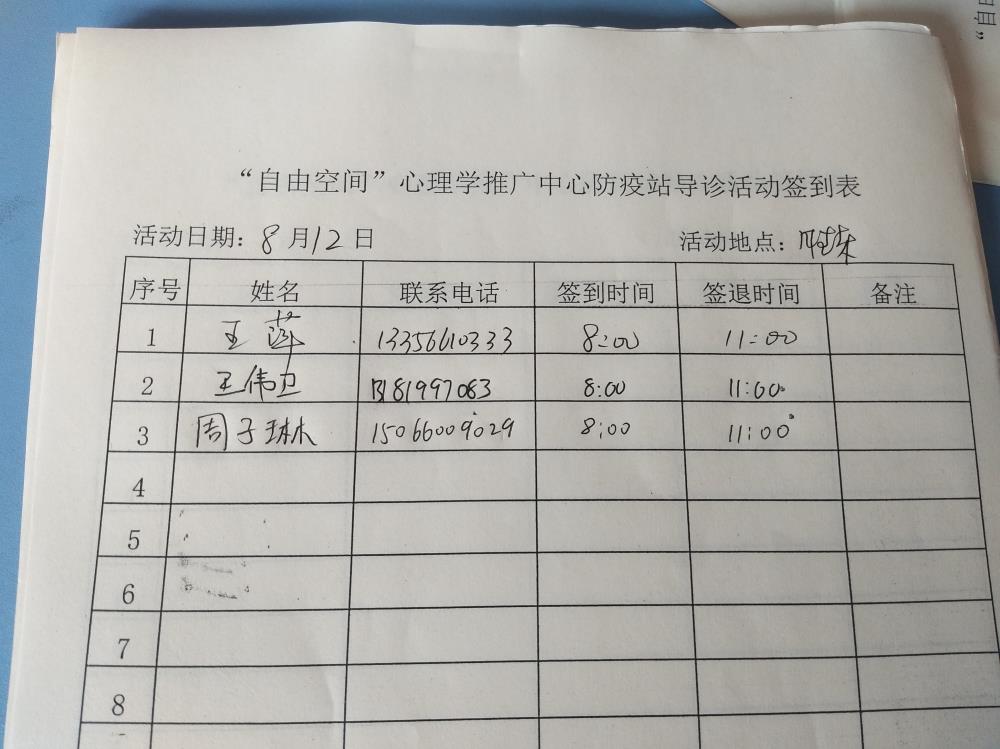 “自由空间”心理学推广中心防疫站导诊活动签到表
活动日期：8月12日 活动地点：
序号 姓名 联系电话 签到时间 签退时间 备注
1 王 13356610333 8:00 11:00
2 王伟卫 81997083 8:00 11:00
3 周子琳 15066009029 8:00 11:00
4
5
6
7
8